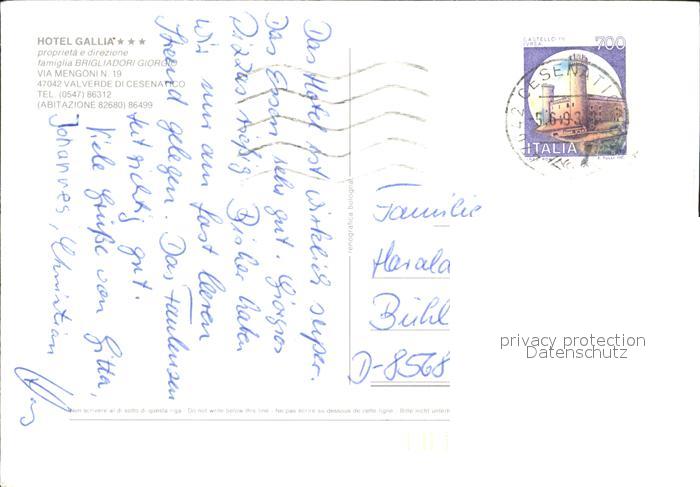 HOTEL GALLIA ★ ★ ★
proprietà e direzione
famiglia BRIGLIADORI GIORGIO
VIA MENGONI N. 19
47042 VALVERDE DI CESENATICO
TEL. (0547) 86312
(ABITAZIONE 82680) 86499
CASTELLO DI IVREA
700
ITALIA
CESENATI
Das Hotel ist wirklich super.
Das Essen sehr gut. Giorgios
Pizzas riesig. Bisher haben
wir nur am fast leeren
Strand gelegen. Das Faulenzen
tut richtig gut.
Viele Grüße von Gitta,
Johannes, Christian
renografica bologna
Familie
Harald
Bühl
D-8568
Non scrivere al di sotto di questa riga - Do not write below this line - Ne pas écrire au dessous de cette ligne - Bitte nicht untern
privacy protection
Datenschutz